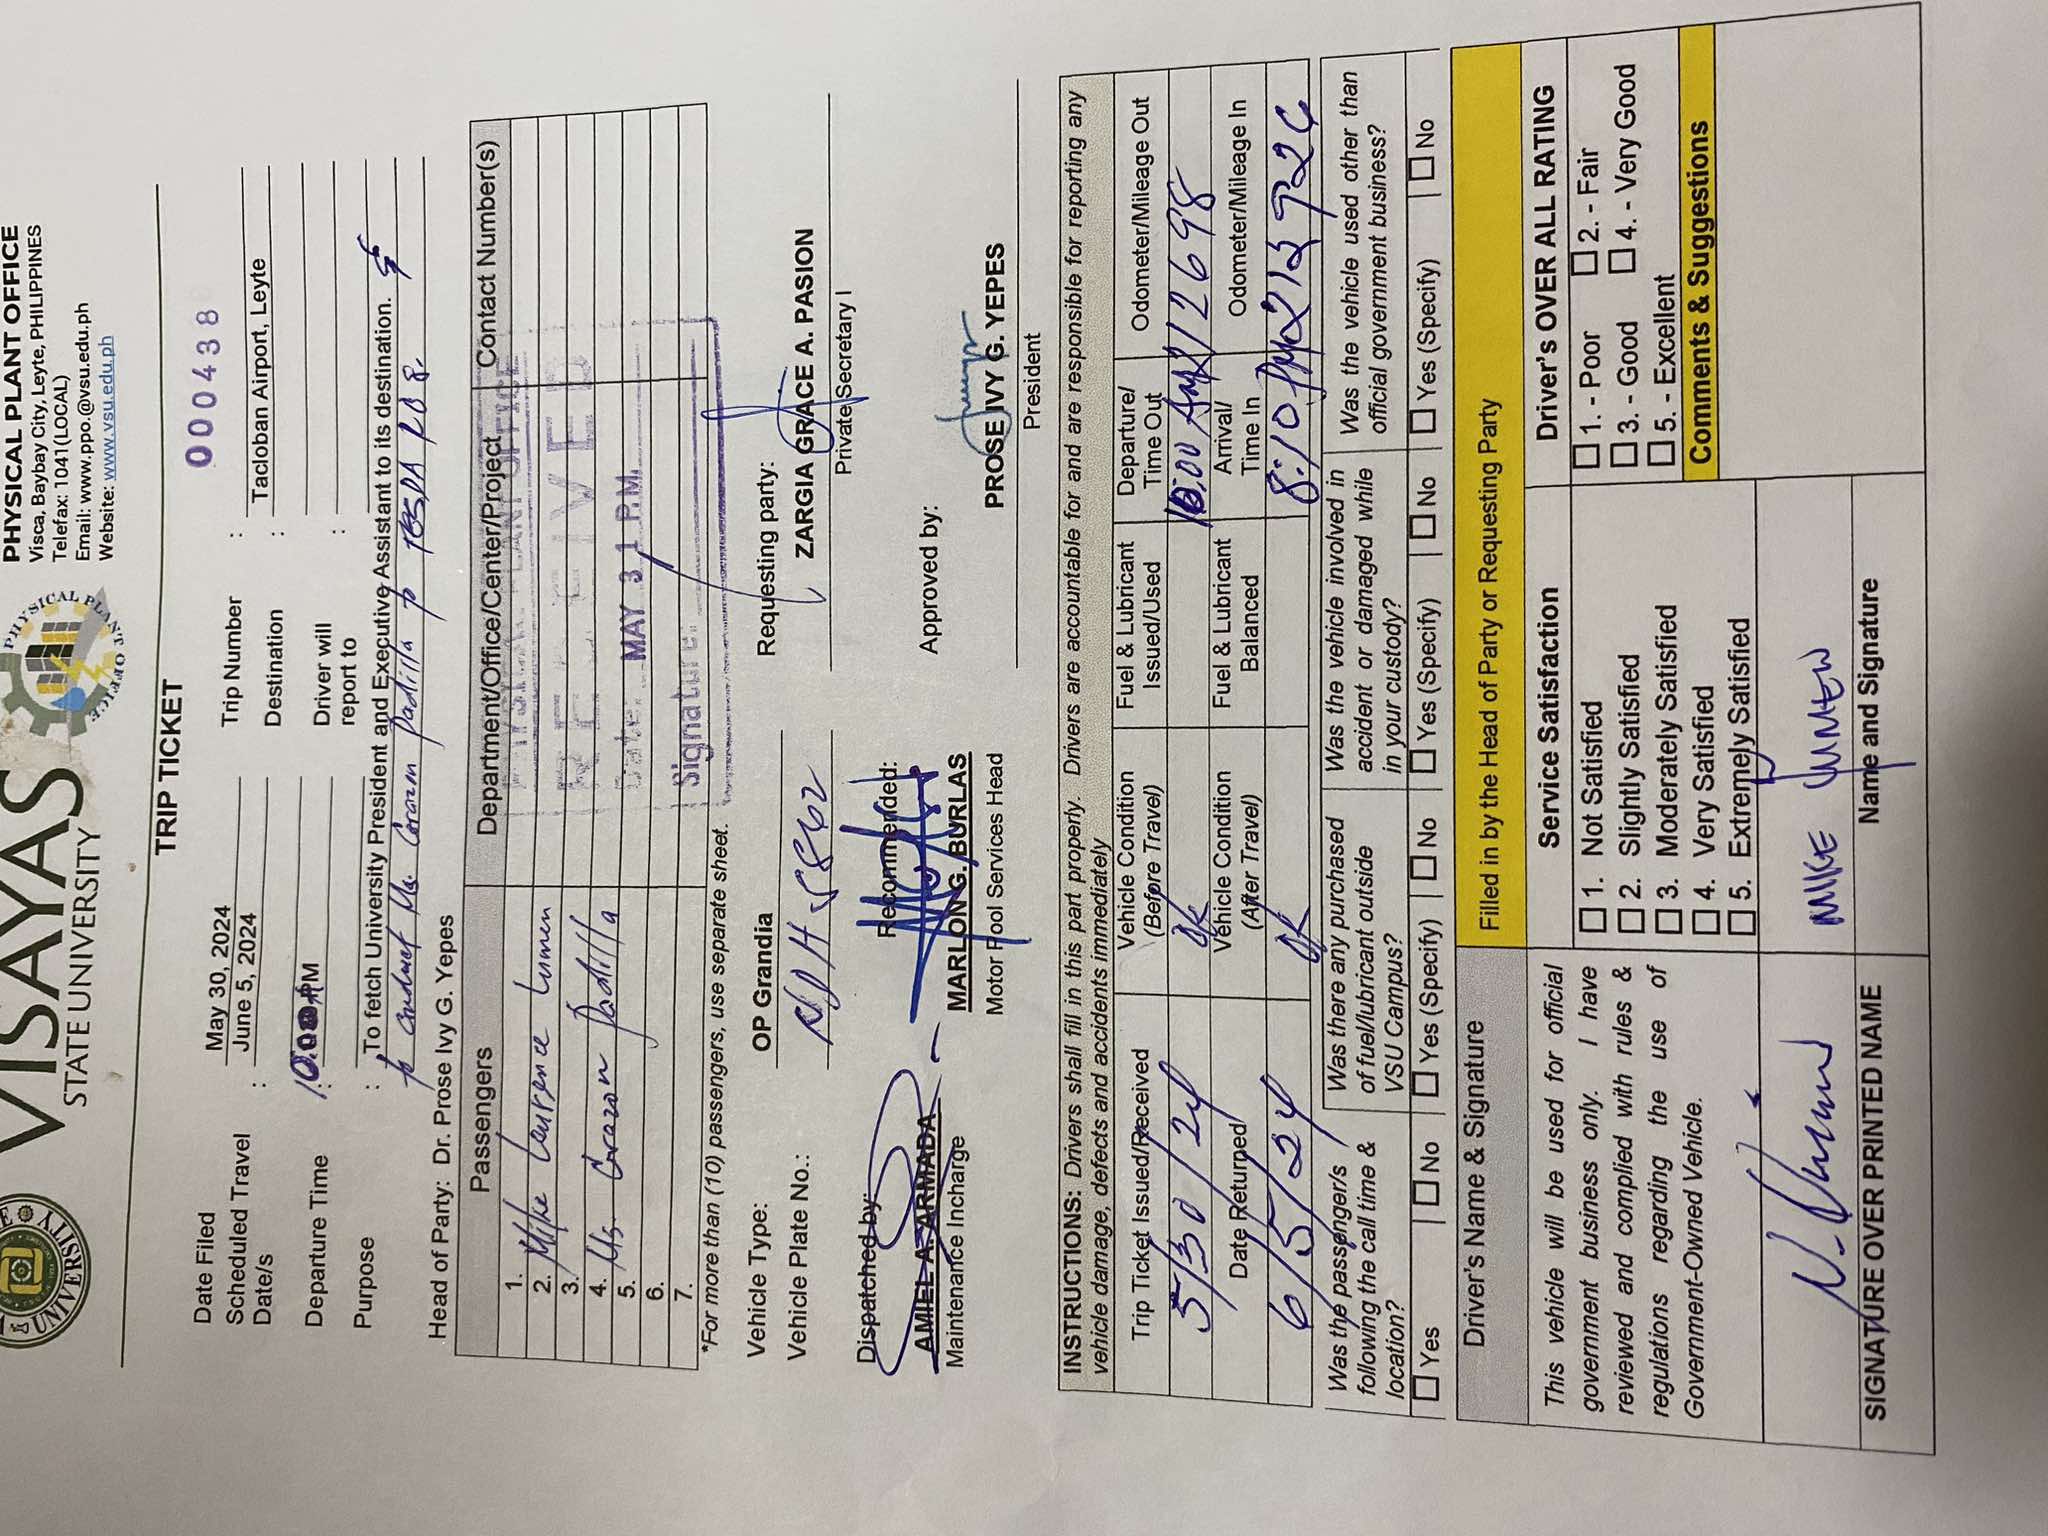 VISAYAS
STATE UNIVERSITY
UNIVERSITY
PHYSICAL PLANT OFFICE
PHYSICAL PLANT OFFICE
Visca, Baybay City, Leyte, PHILIPPINES
Telefax: 1041(LOCAL)
Email: www.ppo.@vsu.edu.ph
Website: www.vsu.edu.ph
TRIP TICKET
000438
Date Filed : May 30, 2024
Trip Number :
Scheduled Travel Date/s : June 5, 2024
Destination : Tacloban Airport, Leyte
Departure Time :
Driver will report to :
Purpose : To fetch University President and Executive Assistant to its destination. &
to conduct Ms. Corazon Padilla to TESDA RO8.
Head of Party: Dr. Prose Ivy G. Yepes
Passengers Department/Office/Center/Project Contact Number(s)
1.
2. Mike Laurence Lumen
3.
4. Ms. Corazon Padilla
5.
6.
7.
PHYSICAL PLANT OFFICE
RECEIVED
Date: MAY 31 P.M.
Signature:
*For more than (10) passengers, use separate sheet.
Vehicle Type: OP Grandia
Vehicle Plate No.:
Requesting party:
ZARGIA GRACE A. PASION
Private Secretary I
Dispatched by:
AMIEL A. ARMADA
Maintenance Incharge
Recommended:
MARLON G. BURLAS
Motor Pool Services Head
Approved by:
PROSE IVY G. YEPES
President
INSTRUCTIONS: Drivers shall fill in this part properly. Drivers are accountable for and are responsible for reporting any
vehicle damage, defects and accidents immediately
Trip Ticket Issued/Received Vehicle Condition (Before Travel) Fuel & Lubricant Issued/Used Departure/ Time Out Odometer/Mileage Out
5/30/24 ok 212698
Date Returned Vehicle Condition (After Travel) Fuel & Lubricant Balanced Arrival/ Time In Odometer/Mileage In
6/5/24 ok 8:10 PM
Was the passenger/s following the call time & location?
Was there any purchased of fuel/lubricant outside VSU Campus?
Was the vehicle involved in accident or damaged while in your custody?
Was the vehicle used other than official government business?
☐ Yes ☐ No ☐ Yes (Specify) ☐ No ☐ Yes (Specify) ☐ No ☐ Yes (Specify) ☐ No
Driver's Name & Signature
Filled in by the Head of Party or Requesting Party
This vehicle will be used for official
government business only. I have
reviewed and complied with rules &
regulations regarding the use of
Government-Owned Vehicle.
Service Satisfaction
☐ 1. Not Satisfied
☐ 2. Slightly Satisfied
☐ 3. Moderately Satisfied
☐ 4. Very Satisfied
☐ 5. Extremely Satisfied
Driver's OVER ALL RATING
☐ 1. - Poor ☐ 2. - Fair
☐ 3. - Good ☐ 4. - Very Good
☐ 5. - Excellent
Comments & Suggestions
MIKE LUMEN
SIGNATURE OVER PRINTED NAME
Name and Signature